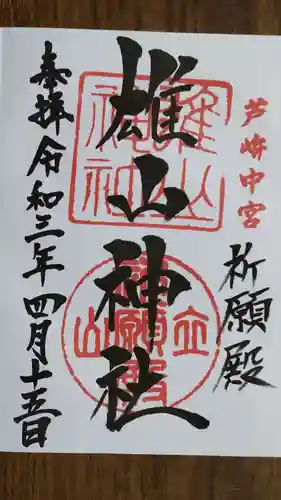 芦峅中宮
祈願殿
雄山神社
奉拝 令和三年四月十五日
雄山神社
立山祈願殿